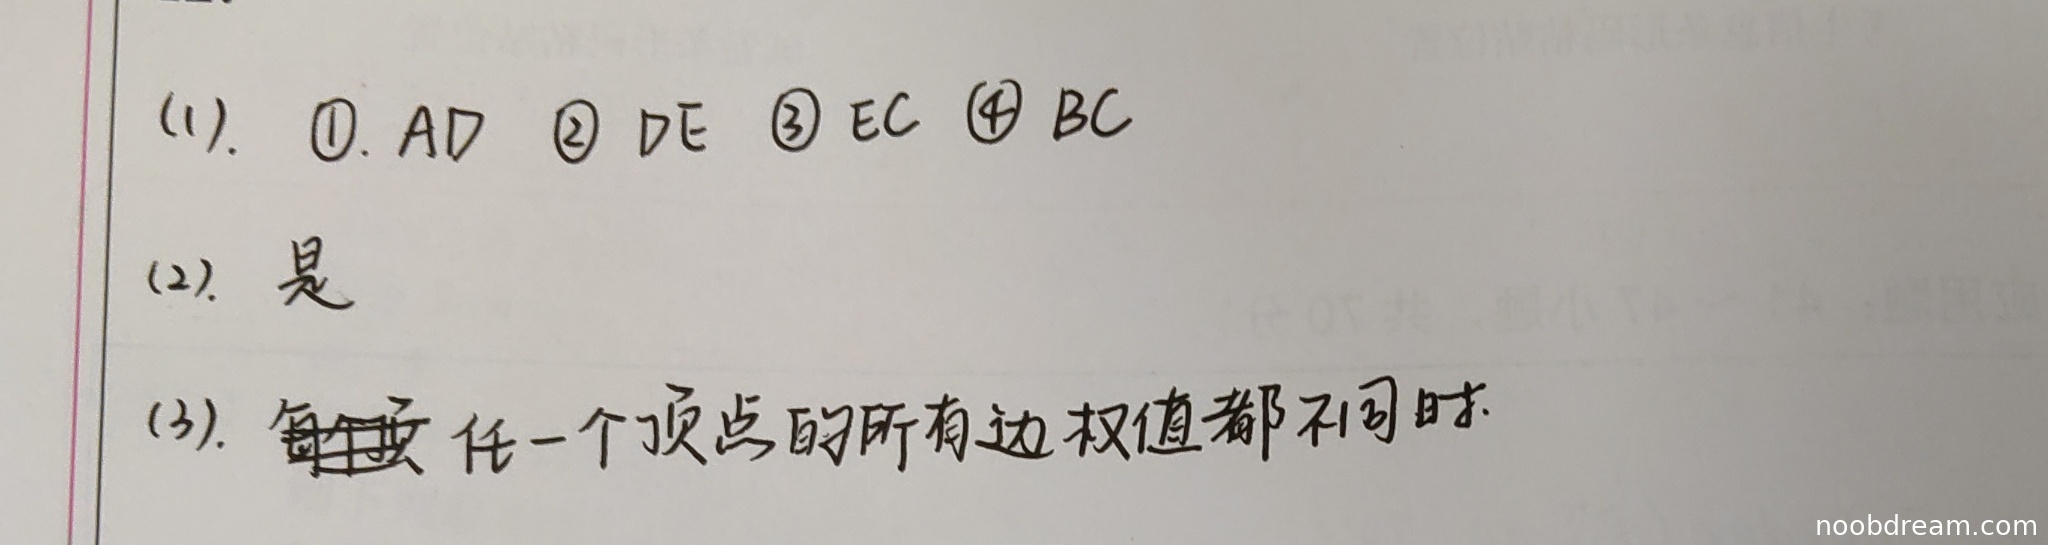 (1). ①. AD ② DE ③ EC ④ BC
(2). 是
(3). 任一个顶点的所有边权值都不同时.
noobdream.com